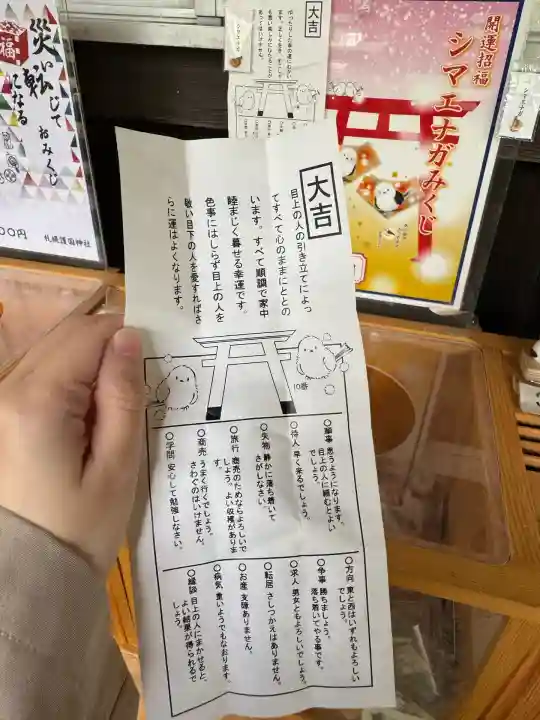 大吉
目上の人の引き立てによっ
てすべて心のままにととの
います。すべて順調で家中
睦まじく暮せる幸運です。
色事にはしらず目上の人を
敬い目下の人を愛すればさ
らに運はよくなります。
10番
○願事 思うようになります。
目上の人に頼むとよい
でしょう。
○待人 早く来るでしょう。
○失物 静かに落ち着いて
さがしなさい。
○旅行 商売のためならよろしいで
しょう。よい収穫がありま
す。
○商売 うまく行くでしょう。
さわぐのはいけません。
○学問 安心して勉強しなさい。
○方向 東と西はいずれもよろしい
でしょう。
○争事 勝ちましょう。
落ち着いてやる事です。
○求人 男女ともよろしいでしょう。
○転居 さしつかえはありません。
○お産 支障ありません。
○病気 重いようでもなおります。
○縁談 目上の人にまかせると、
よい結果が得られるで
しょう。
開運招福
シマエナガみくじ
大吉
シマエナガ
福
災い転じて
になる
おみくじ
00円
札幌護国神社